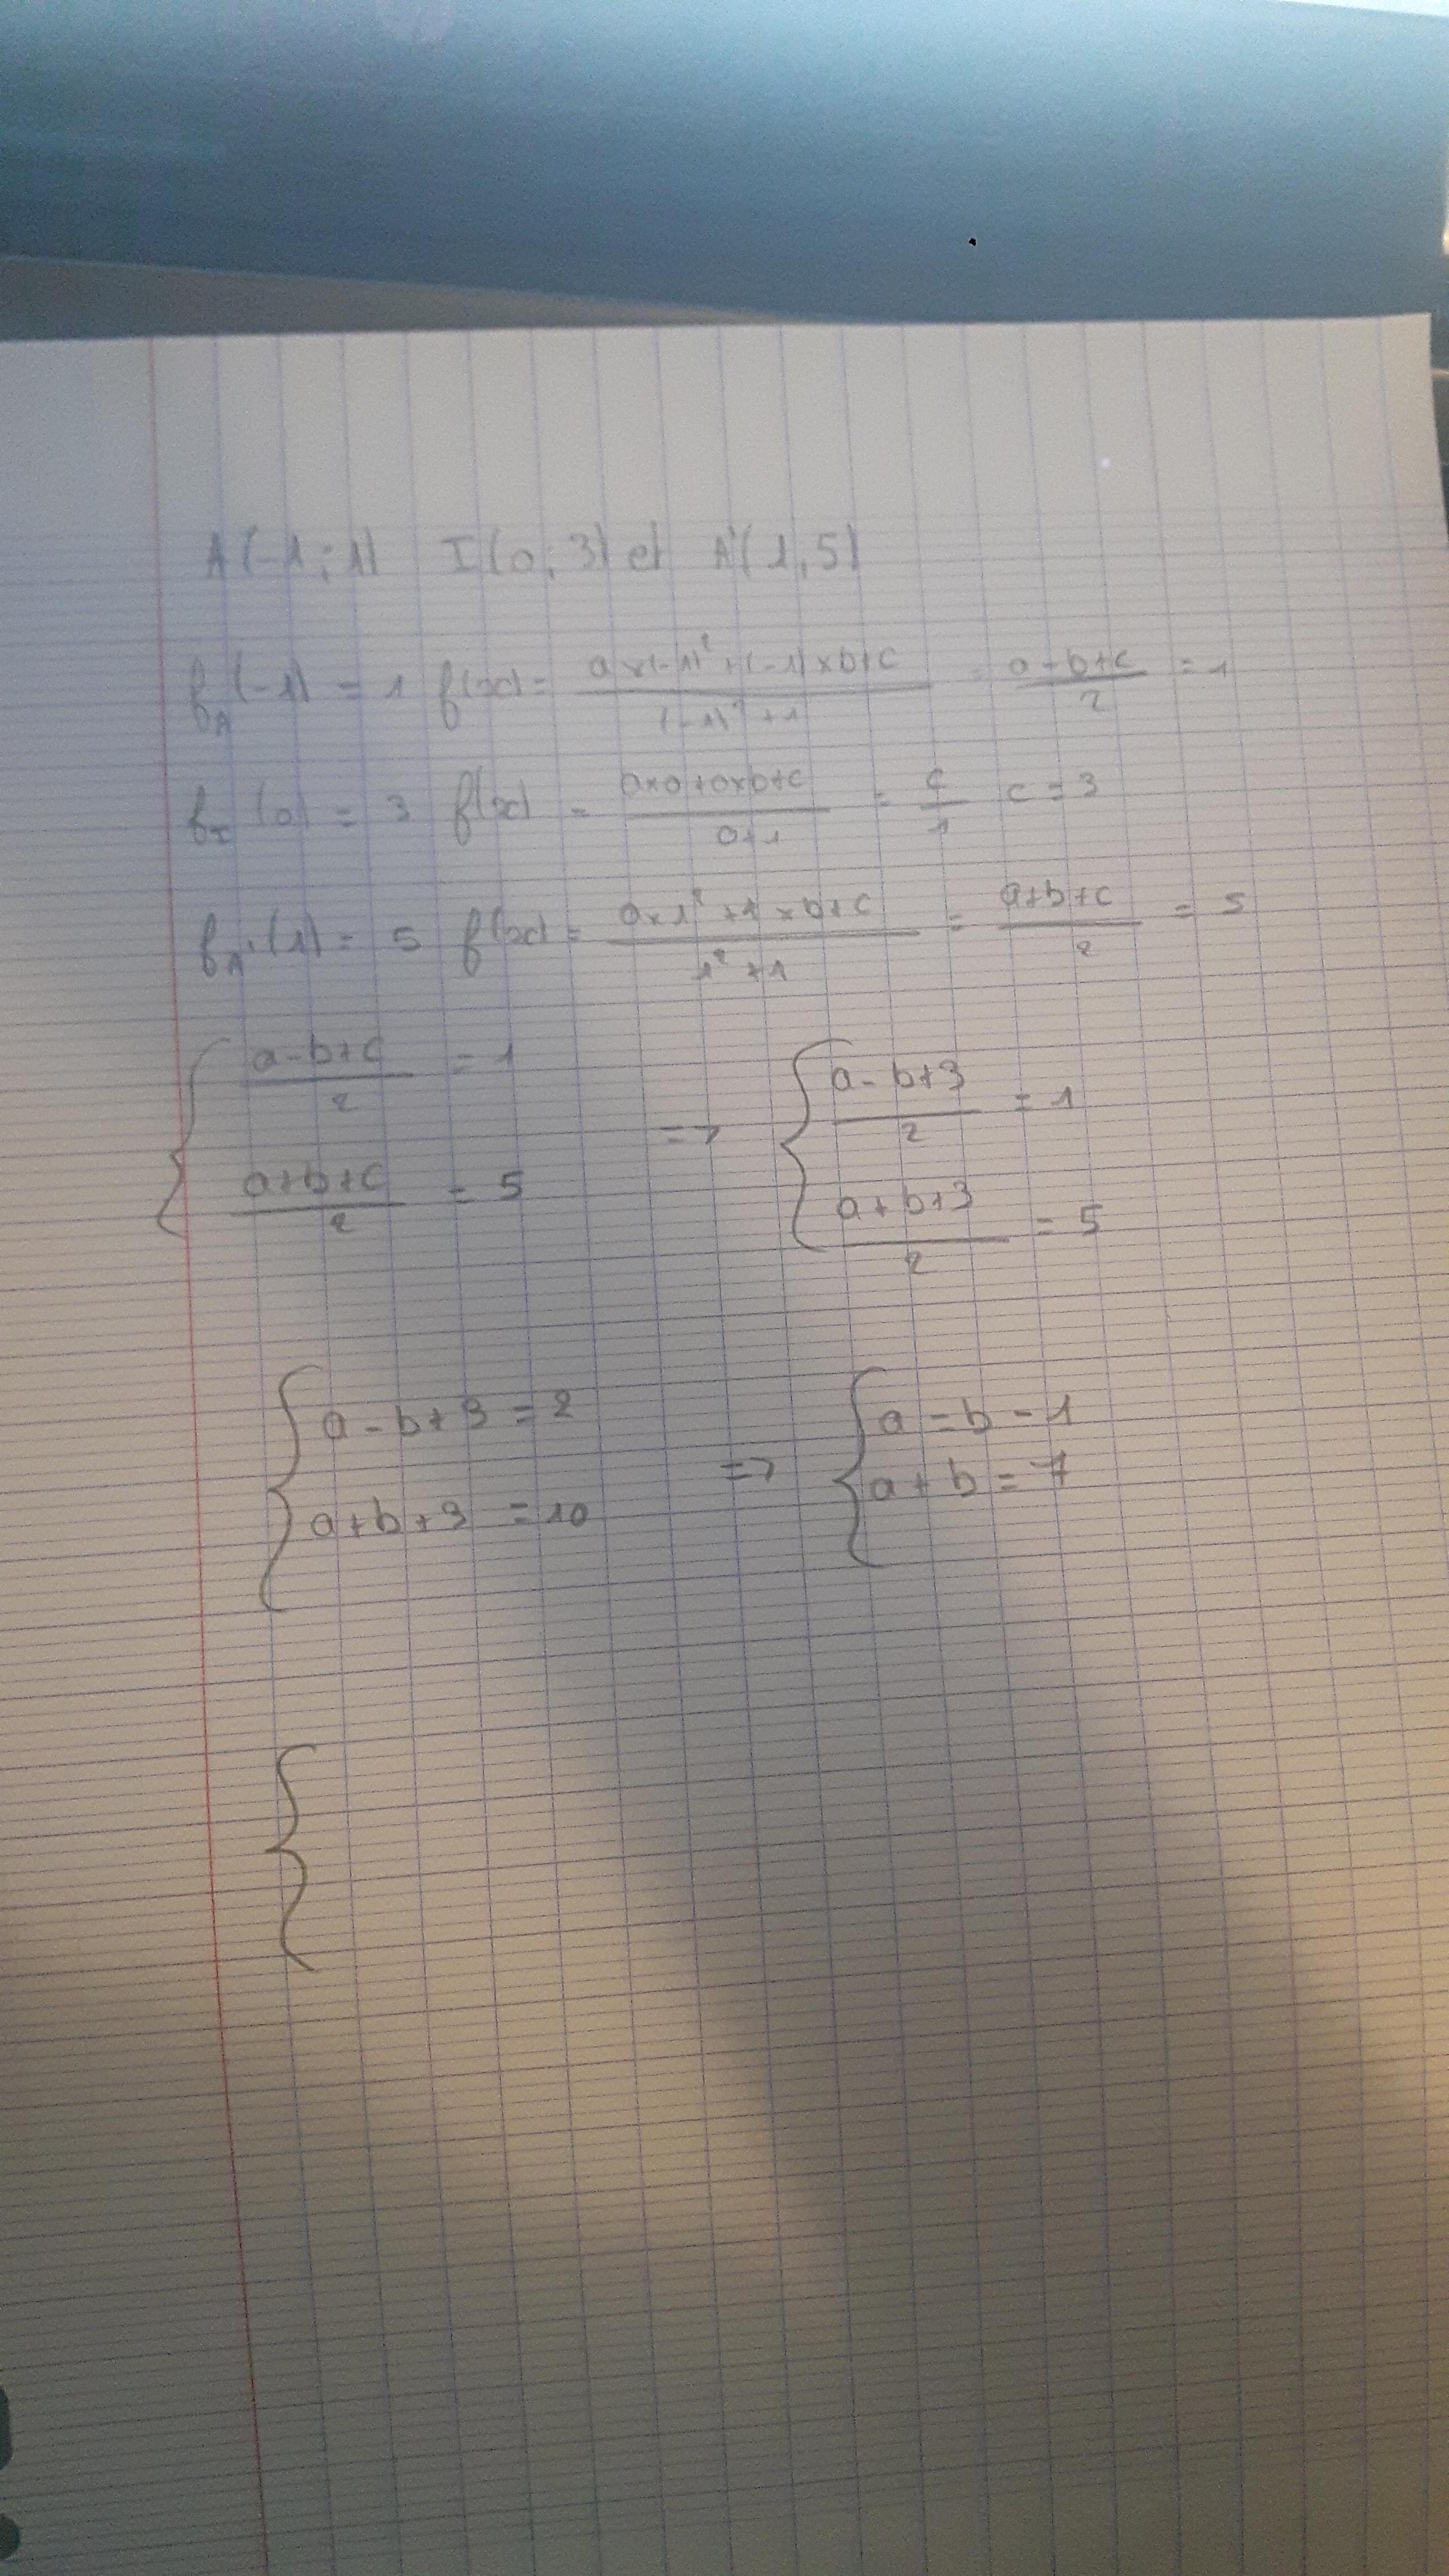 A(-1;1) I(0;3) et A'(1,5)
f_A(-1) = 1 f(x) = (a×(-1)²+(-1)×b+c)/((-1)²+1) = (a-b+c)/2 = 1
f_I(0) = 3 f(x) = (a×0+0×b+c)/(0+1) = c/1 c = 3
f_A'(1) = 5 f(x) = (a×1²+1×b+c)/(1²+1) = (a+b+c)/2 = 5
{ (a-b+c)/2 = 1 => { (a-b+3)/2 = 1
(a+b+c)/2 = 5 (a+b+3)/2 = 5
{ a-b+3 = 2 => { a = b - 1
a+b+3 = 10 a + b = 7
{